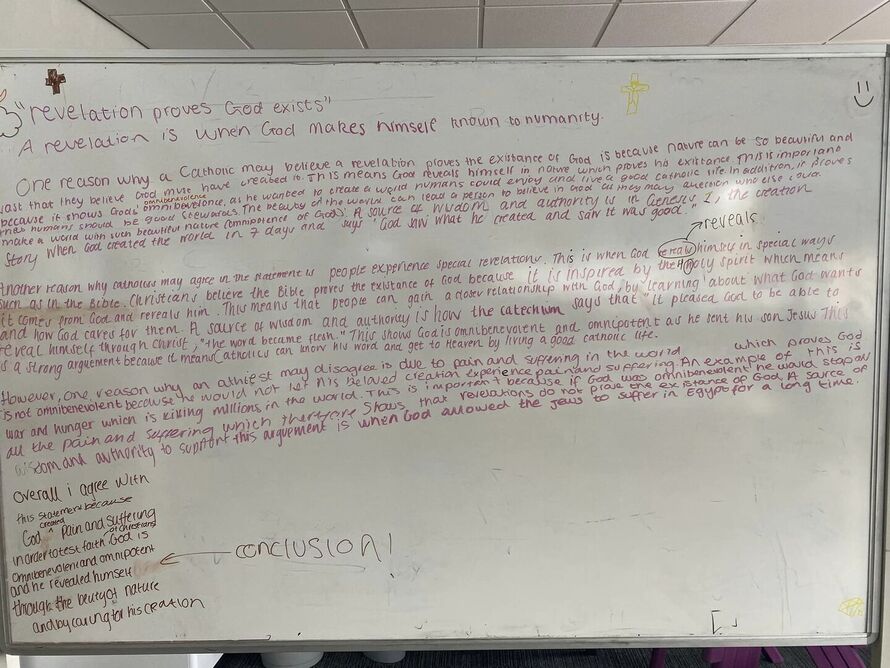 "revelation proves God exists"
A revelation is when God makes himself known to humanity.
One reason why a Catholic may believe a revelation proves the existance of God is because nature can be so beautiful and
vast that they believe God must have created it. This means God reveals himself in nature which proves his existance. This is important
because it shows Gods omnibenevolence, as he wanted to create a world humans could enjoy and live a good catholic life. In addition, it proves
omnibenevolence
that humans should be good stewards. The beauty of the world can lead a person to believe in God as they may question who else could
make a world with such beautiful nature (omnipotence of God). A source of wisdom and authority is in Genesis 1/2, the creation
story when God created the world in 7 days and says "God saw what he created and saw it was good."
reveals
Another reason why catholics may agree in the statement is people experience special revelations. This is when God himself in special ways
such as in the Bible. Christians believe the Bible proves the existance of God because it is inspired by the Holy Spirit which means
it comes from God and reveals him. This means that people can gain a closer relationship with God, by "learning" about what God wants
and how God cares for them. A source of wisdom and authority is how the catechium says that "It pleased God to be able to
reveal himself through Christ, "the word became flesh." This shows God is omnibenevolent and omnipotent as he sent his son Jesus This
is a strong arguement because it means Catholics can know his word and get to Heaven by living a good catholic life.
However, one reason why an athiest may disagree is due to pain and suffering in the world which proves God
is not omnibenevolent because he would not let his beloved creation experience pain and suffering. An example of this is
war and hunger which is killing millions in the world. This is important because if God was omnibenevolent he would stop
all the pain and suffering which therfore shows that revelations do not prove the existance of God. A source of
wisdom and authority to support this arguement is when God allowed the Jews to suffer in Egypt for a long time.
overall i agree with
this statement because
created
God ^ pain and suffering
of christians
in order to test faith. God is
omnibenevolent and omnipotent
and he revealed himself
through the beuty of nature
and by caring for his creation
conclusion!